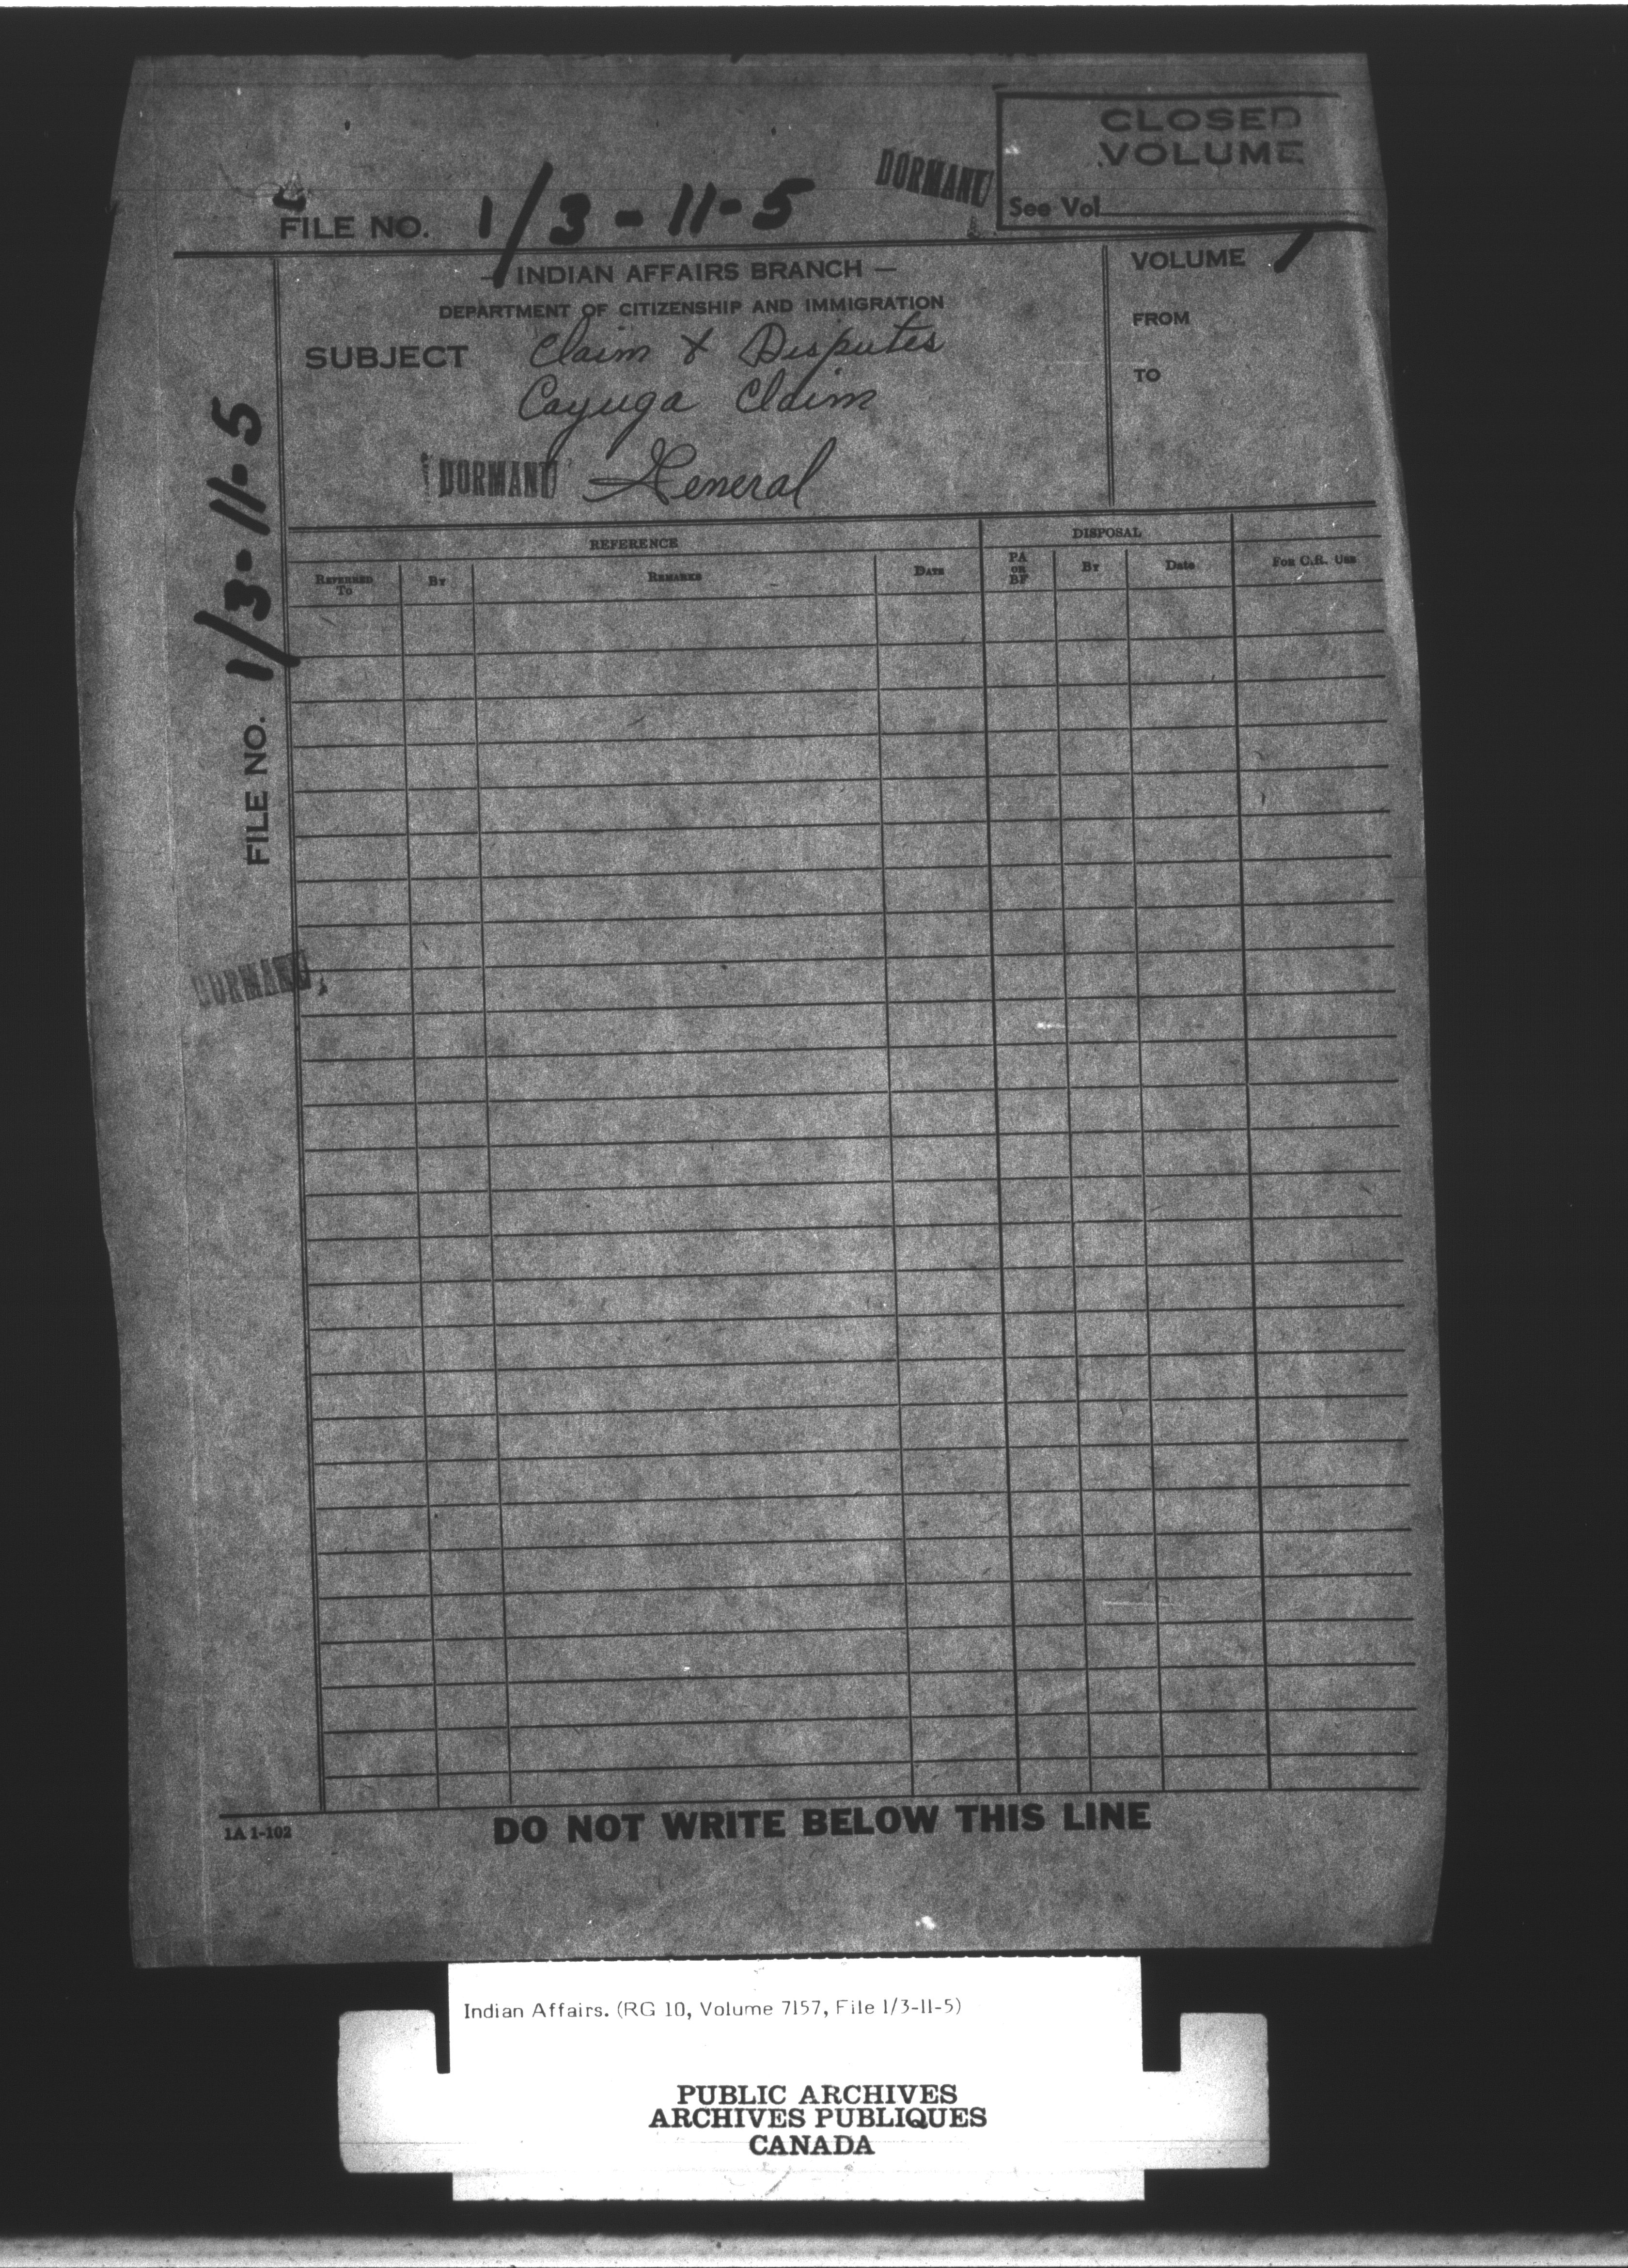 CLOSED
VOLUME
See Vol.
DORMANT
FILE NO. 1/3-11-5
— INDIAN AFFAIRS BRANCH —
DEPARTMENT OF CITIZENSHIP AND IMMIGRATION
SUBJECT Claim & Disputes
Cayuga Claim
DORMANT General
VOLUME 1
FROM
TO
FILE NO. 1/3-11-5
DORMANT
REFERENCE DISPOSAL
REFERRED TO BY REMARKS DATE PA OR BF BY Date FOR C.R. USE
1A 1-102 DO NOT WRITE BELOW THIS LINE
Indian Affairs. (RG 10, Volume 7157, File 1/3-11-5)
PUBLIC ARCHIVES
ARCHIVES PUBLIQUES
CANADA